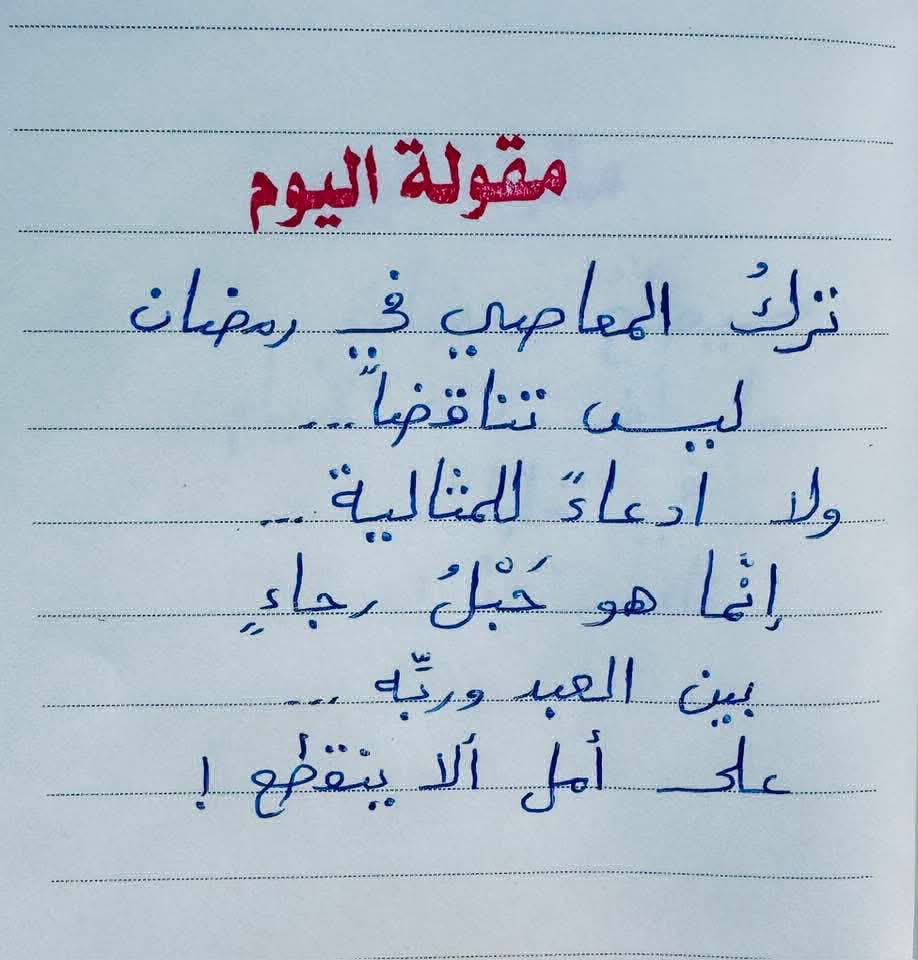 مقولة اليوم
تركُ المعاصي في رمضان
ليس تناقضاً...
ولا ادعاءً للمثالية...
إنّما هو حَبْلُ رجاءٍ
بين العبد وربِّه...
على أمل ألا ينقطع!